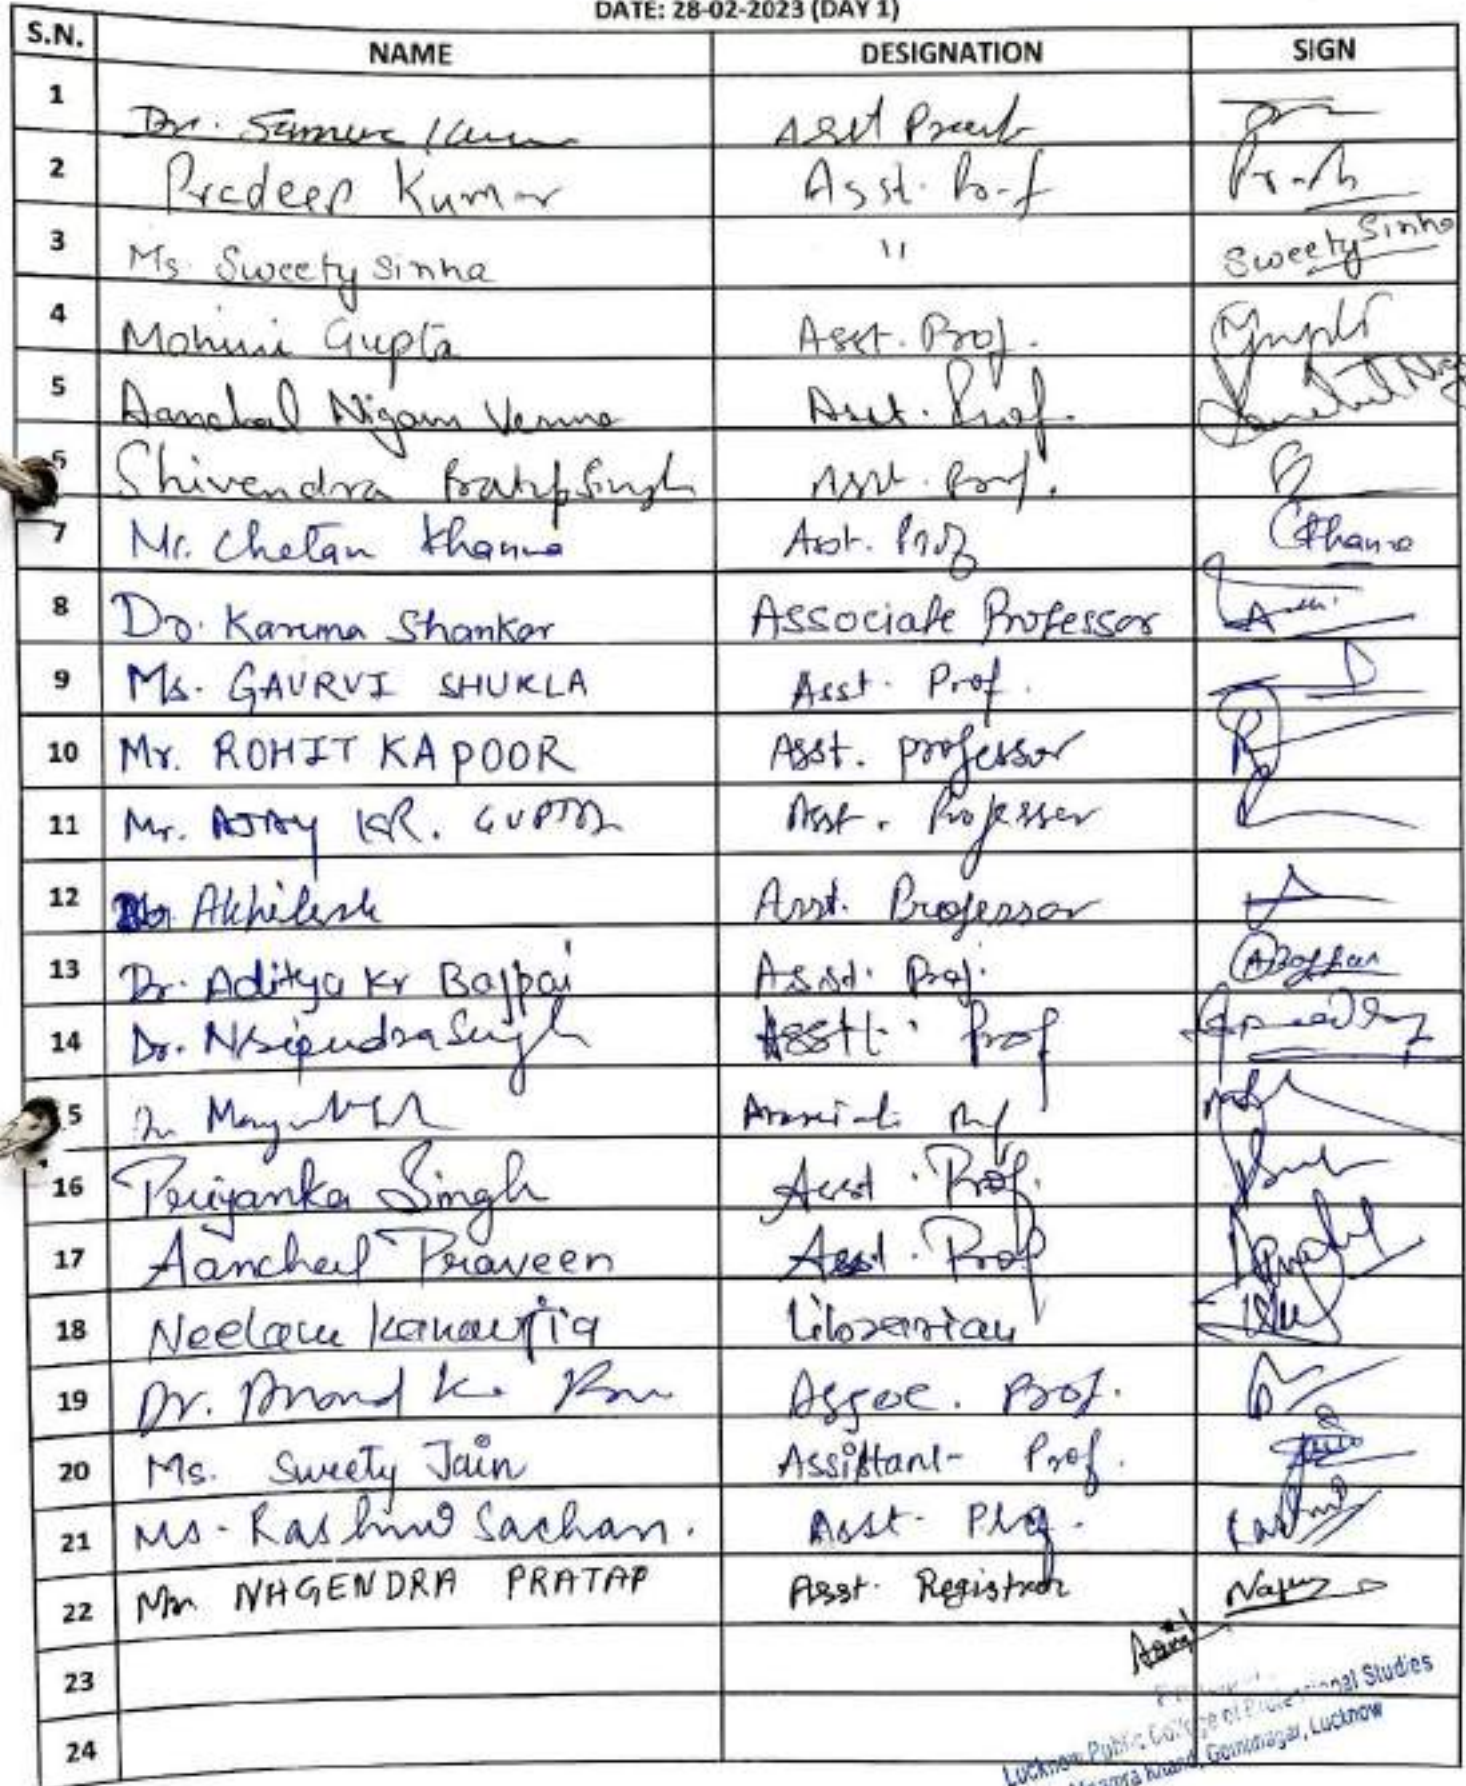 DATE: 28-02-2023 (DAY 1)
S.N. NAME DESIGNATION SIGN
1 Dr. Asst
2 Pradeep Kumar Asst. Prof
3 Ms. Sweety Sinha " Sweety Sinha
4 Mohini Gupta Asst. Prof.
5 Aanchal Nigam Verma Asst. Prof.
6 Shivendra Pratap Singh Asst. Prof.
7 Mr. Chetan Khanna Asst. Prof CKhanna
8 Dr. Karuna Shanker Associate Professor
9 Ms. GAURVI SHUKLA Asst. Prof.
10 Mr. ROHIT KAPOOR Asst. professor
11 Mr. AJAY KR. GUPTA Asst. Professor
12 Akhilesh Asst. Professor
13 Dr. Aditya Kr Bajpai Asst. Prof.
14 Dr. Nripendra Singh Asstt. Prof
15 Dr
16 Priyanka Singh Asst. Prof.
17 Aanchal Praveen Asst. Prof
18 Neelam Kanaujia Librarian
19 Dr. Anand Assoc. Prof.
20 Ms. Sweety Jain Assistant Prof.
21 Ms. Rashmi Sachan. Asst. Prof.
22 Mr. NAGENDRA PRATAP Asst. Registrar
23
24
Lucknow Public College of Professional Studies
Gomtinagar, Lucknow